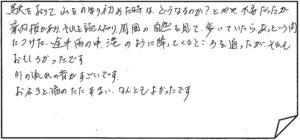 駅をおりて山をのぼり初めた時は、どうなるのか?とやや不安だったが
案内板があり、それを読んだり、周囲の自然を見て、歩いていたら、あっという間
につけた。途中雨の中、滝のように降ってくるところを通ったが、それも
おもしろかったです
川の流れの音がすごいです。
お忍ろと宿のたたずまい、なんともよかったです